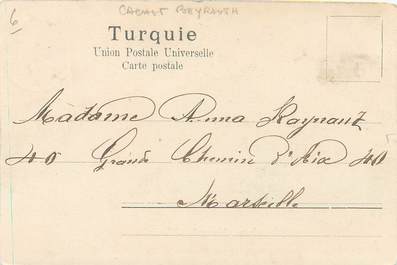 6
CACHET BEYROUTH
Turquie
Union Postale Universelle
Carte postale
Madame Anna Raynaud
40 Grand Chemin d'Aix 40
Marseille